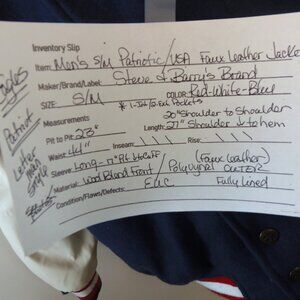 Inventory Slip
Item: Men's S/M Patriotic/USA Faux Leather Jacket
Maker/Brand/Label: Steve & Barry's Brand
SIZE: S/M COLOR: Red-White-Blue
* 1-Int/2-Ext Pockets
Measurements 20" Shoulder to Shoulder
Pit to Pit: 23" Length: 27" Shoulder to hem
Waist: 44" Inseam: Rise:
Sleeve Long- (Faux Leather)
Material: Wool Blend Front/ Polyvinyl OUTER
Condition/Flaws/Defects: EUC Fully Lined
Patriot
Letter
man
Style